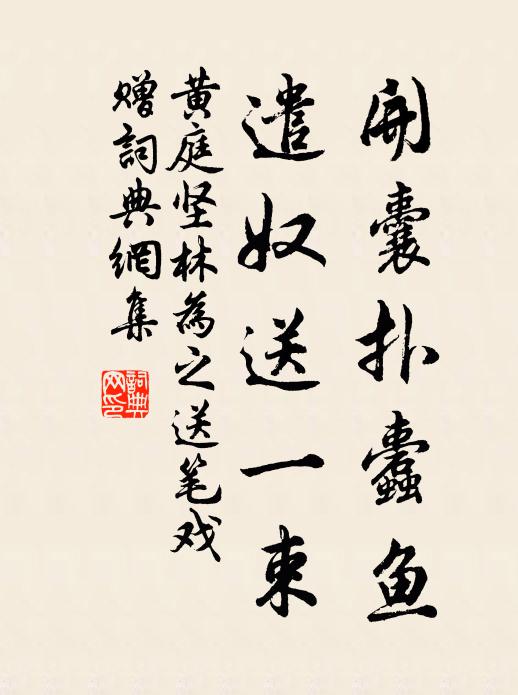 開囊扑蠹鱼
遣奴送一束
黄庭坚林為之送笔戏
赠詞典網集
詞典网印